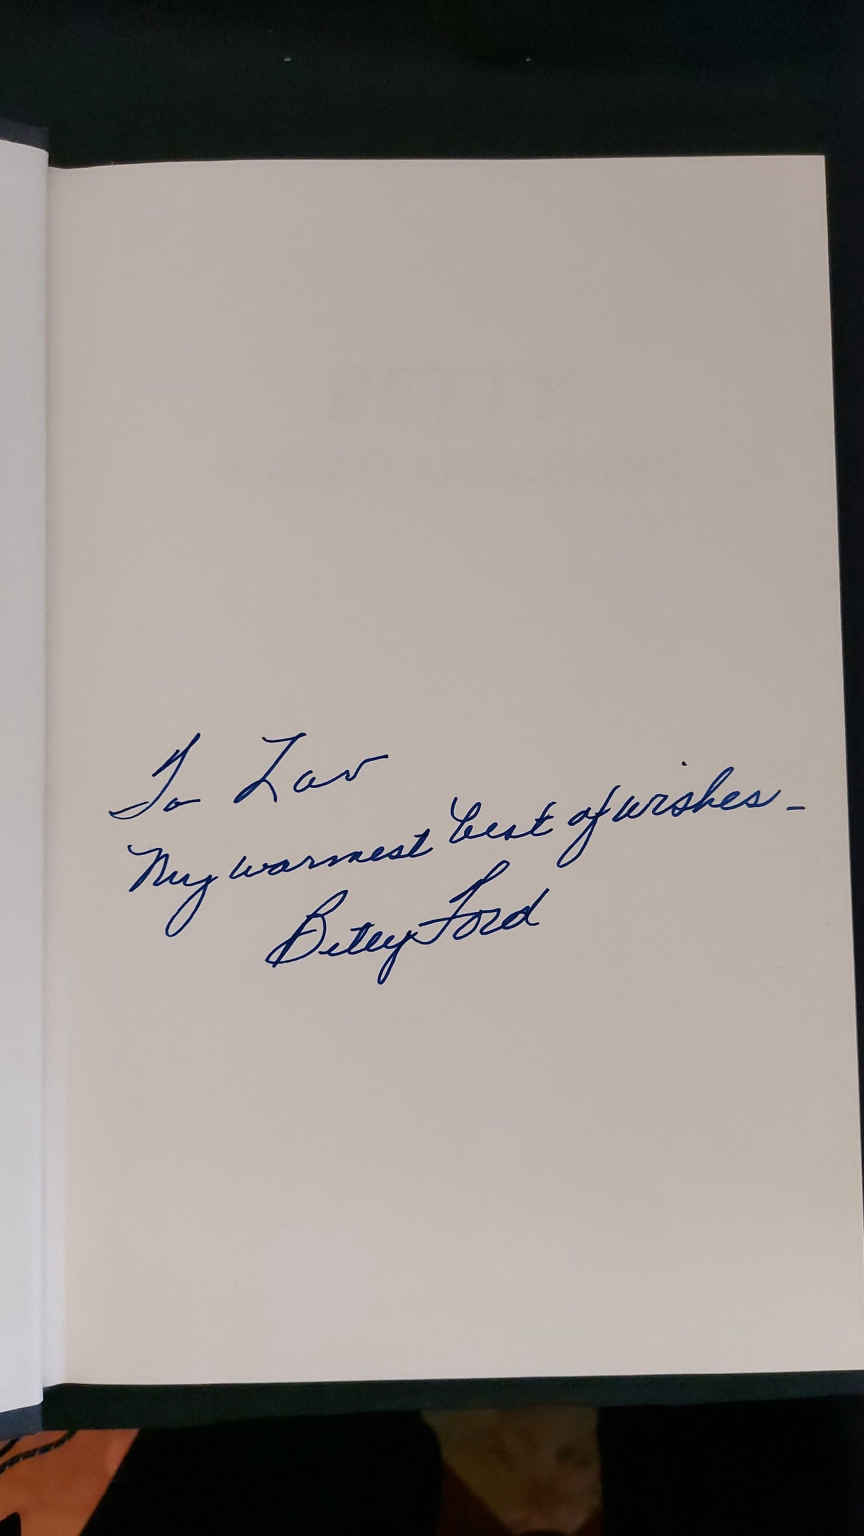 To Lav
My warmest best of wishes -
Betty Ford